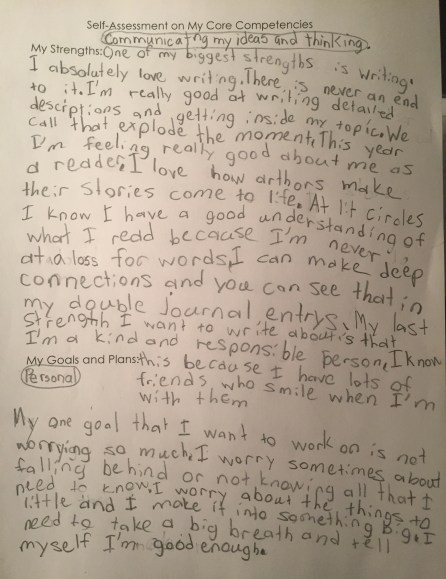 Self-Assessment on My Core Competencies
Communicating my ideas and thinking.
My Strengths: One of my biggest strengths is writing.
I absolutely love writing. There is never an end
to it. I'm really good at writing detailed
descriptions and getting inside my topic. We
call that explode the moment. This year
I'm feeling really good about me as
a reader. I love how arthors make
their stories come to life. At lit circles
I know I have a good understanding of
what I redd because I'm never
at a loss for words. I can make deep
connections and you can see that in
my double Journal entrys. My last
Strength I want to write about is that
I'm a kind and responsible person, I know
My Goals and Plans: this because I have lots of
Personal friends who smile when I'm
with them
My one goal that I want to work on is not
worrying so much. I worry sometimes about
falling behind or not knowing all that I
need to know. I worry about the things to
little and I make it into something big. I
need to take a big breath and tell
myself I'm good enough.